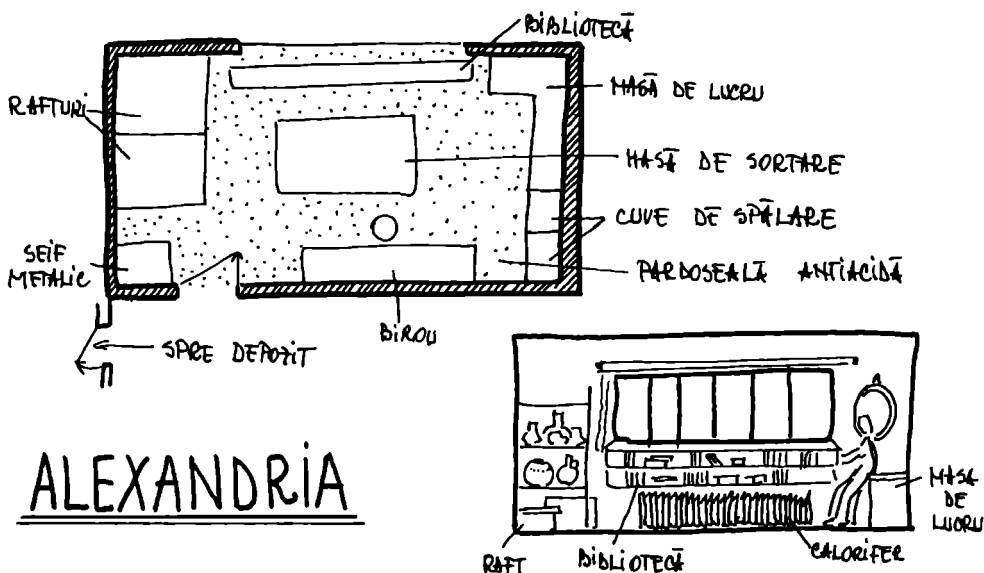 BIBLIOTECĂ
RAFTURI
MASĂ DE LUCRU
MASĂ DE SORTARE
CUVE DE SPĂLARE
SEIF
METALIC
PARDOSEALĂ ANTIACIDĂ
BIROU
SPRE DEPOZIT
ALEXANDRIA
MASA
DE
LUCRU
RAFT
BIBLIOTECĂ
CALORIFER